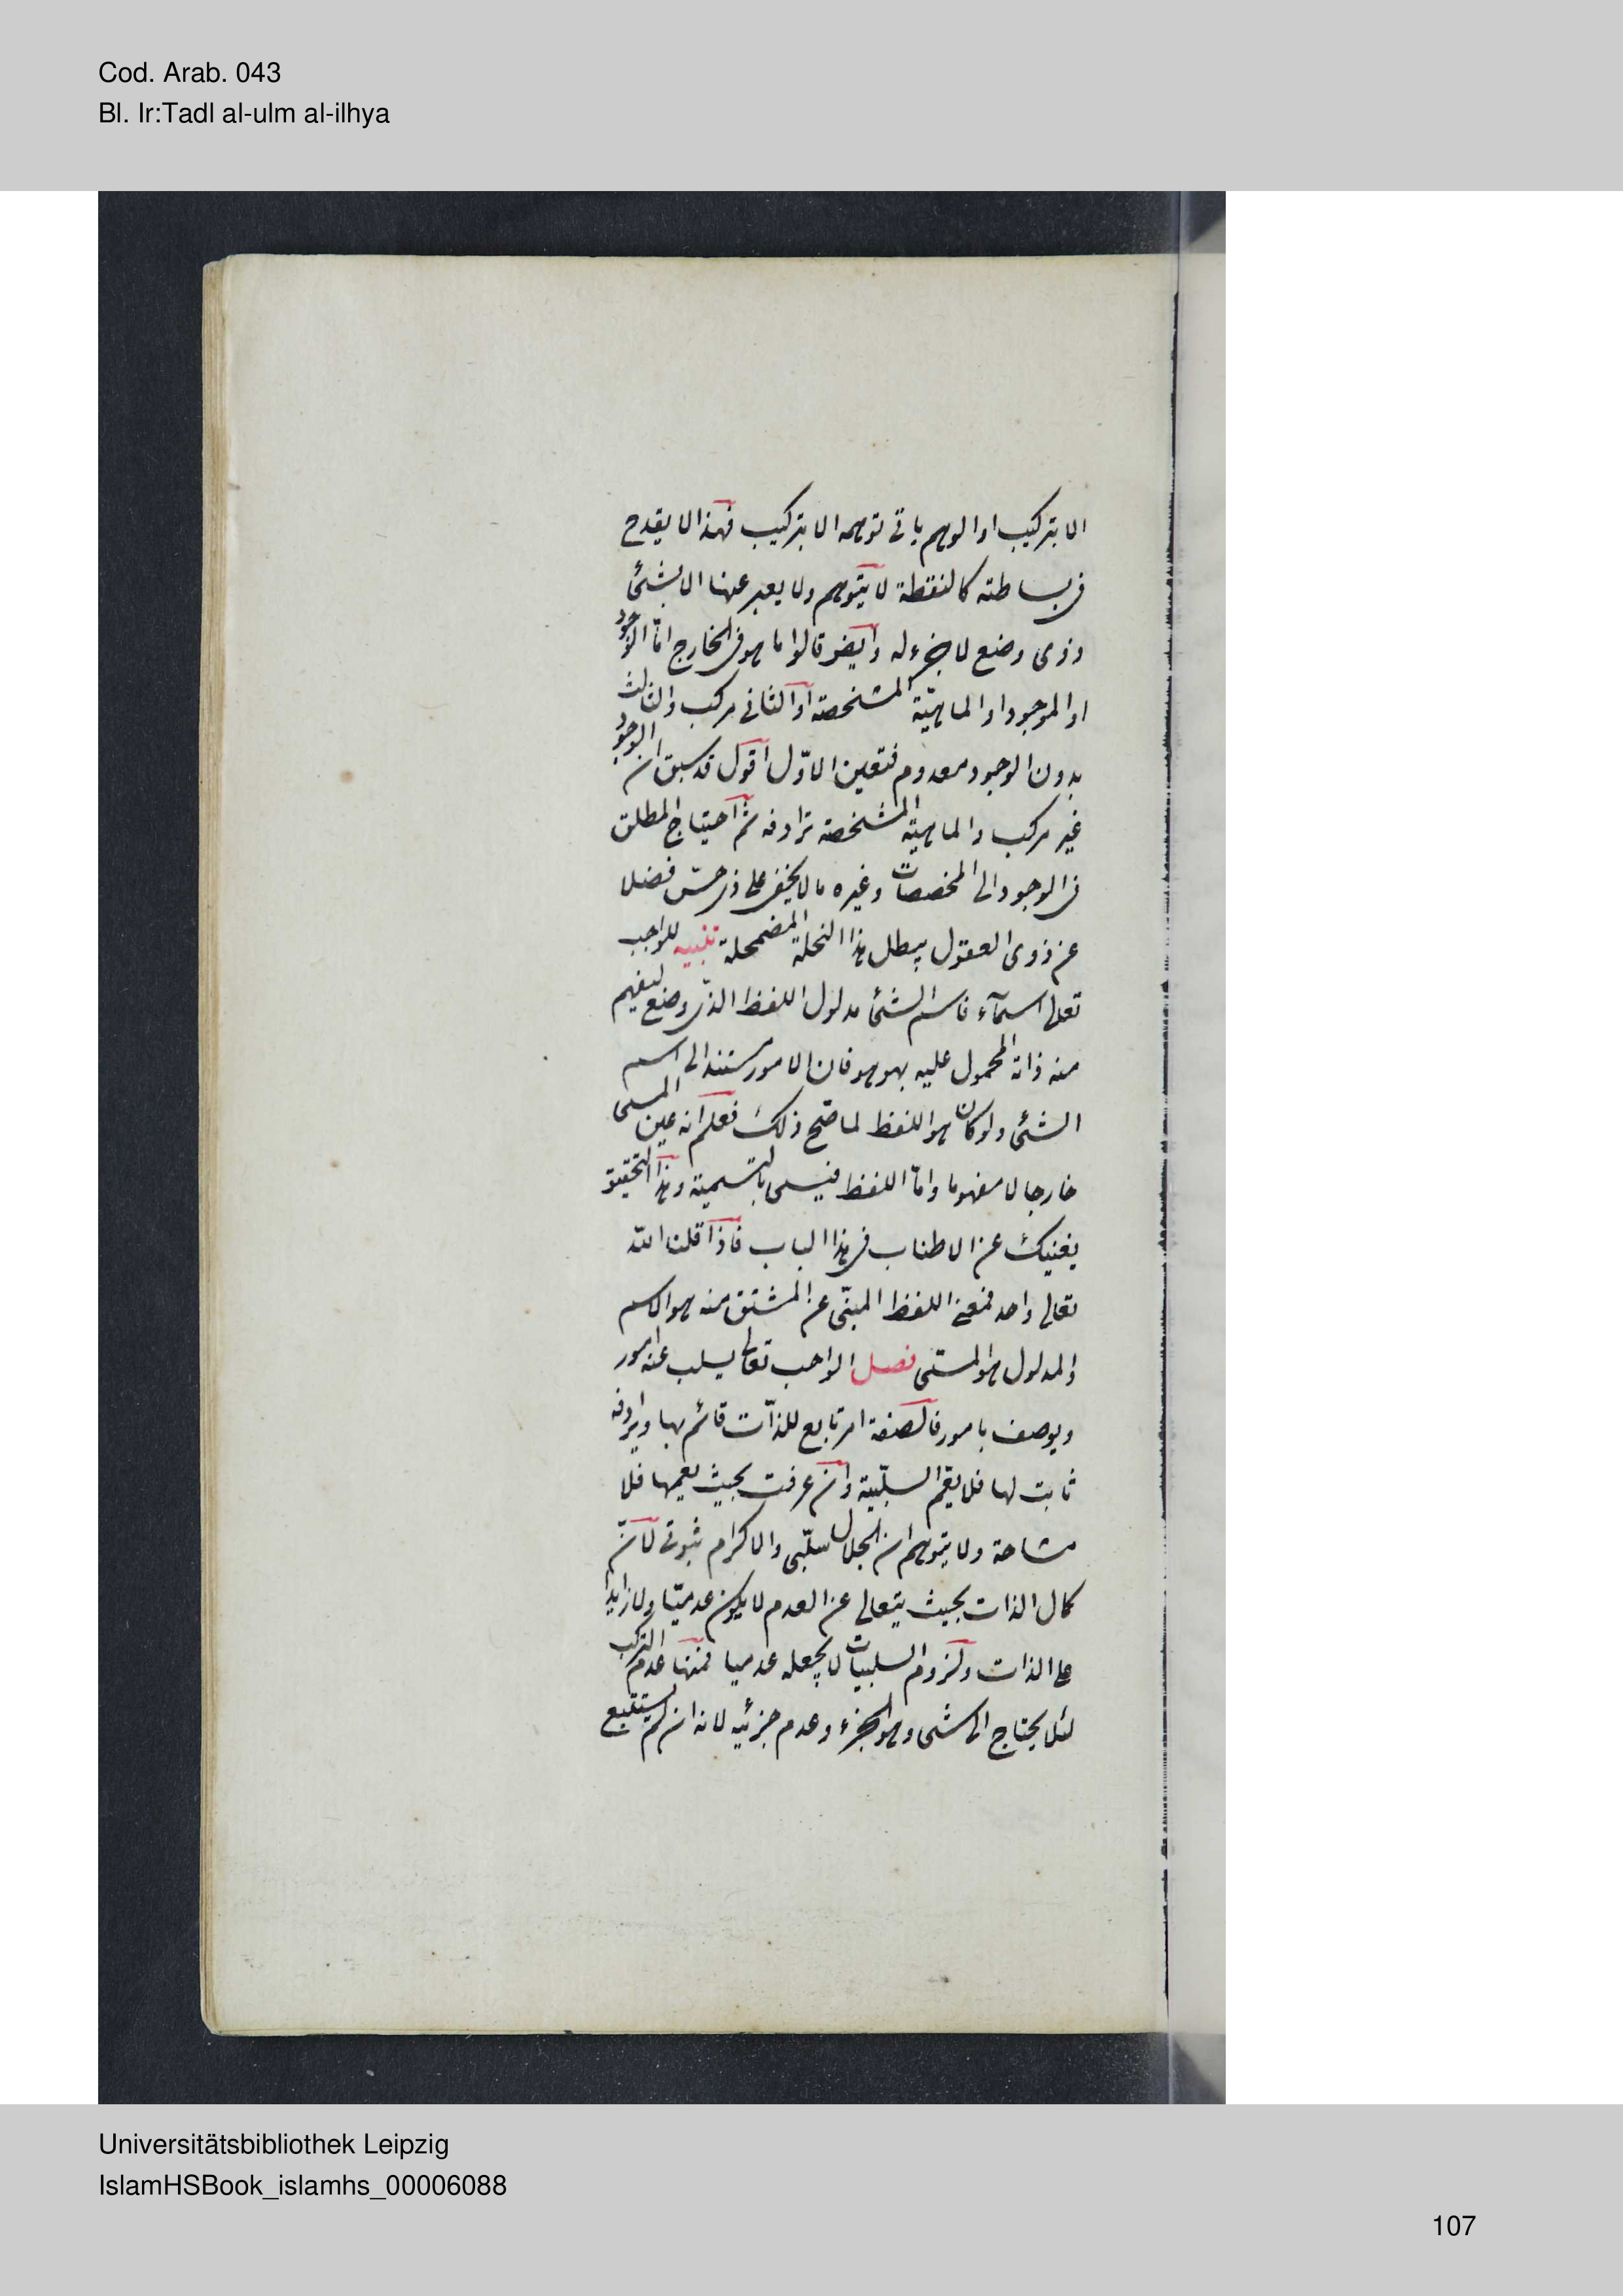 Cod. Arab. 043
Bl. Ir:Tadl al-ulm al-ilhya
الا بتركيب او الوهم يأتى توهمه الا بتركيب فهذا لا يقدح
فى بساطته كالنقطة لا يتوهم ولا يعبر عنها الا بشئ
وذى وضع لا جزء له وايضو قالوا ما هو فى الخارج امّا الوجود
او الموجود او الماهيّة المشخصة او الثانى مركب والثالث
بدون الوجود معدوم فتعين الاوّل اقول قد سبق ان الوجود
غير مركب والماهيّة المشخصة ترادفه ثم احتياج المطلق
فى الوجود الى المخصصات وغيره مما لا يخفى على ذى حسّ فضلا
عن ذوى العقول يبطل هذا النحلة المضمحلة تنبيه للواجب
تعالى اسمآء فاسم الشئ مدلول اللفظ الذى وضع ليفهم
منه ذاته المحمول عليه بهو هو فان الامور مستند الى اسم
الشئ ولو كان هو اللفظ لما صّح ذلك فعلم انه عين المسمى
خارجا لا مفهوما وامّا اللفظ فيسمى بالتسمية وهذا التحقيق
يغنيك عن الاطناب فى هذا الباب فاذا قلنا الله
تعالى واحد فمعنى اللفظ المبنّى عن المشتق منه هو الاسم
والمدلول هو المسمّى فصل الواجب تعالى يسلب عنه امور
ويوصف بامور فالصفة امر تابع للذّات قائم بها ويرادفه
ثابت لها فلا يعّم السلبّية وان عرفت بحيث يعمها فلا
مشاحة ولا يتوهم ان الجلال سلبّى والاكرام ثبوتى لانّ
كمال الذات بحيث يتعالى عن العدم لا يكون عدميّا ولا زايدا
على الذات ولزوم السلبيات لا يجعله عدميا فمنها عدم التركب
لئلا يحتاج الى شئ وهو الجزء وعدم جزئيه لانه ان لم يستتبع
Universitätsbibliothek Leipzig
IslamHSBook_islamhs_00006088
107